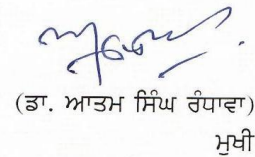 (ਡਾ. ਆਤਮ ਸਿੰਘ ਰੰਧਾਵਾ)
ਮੁਖੀ